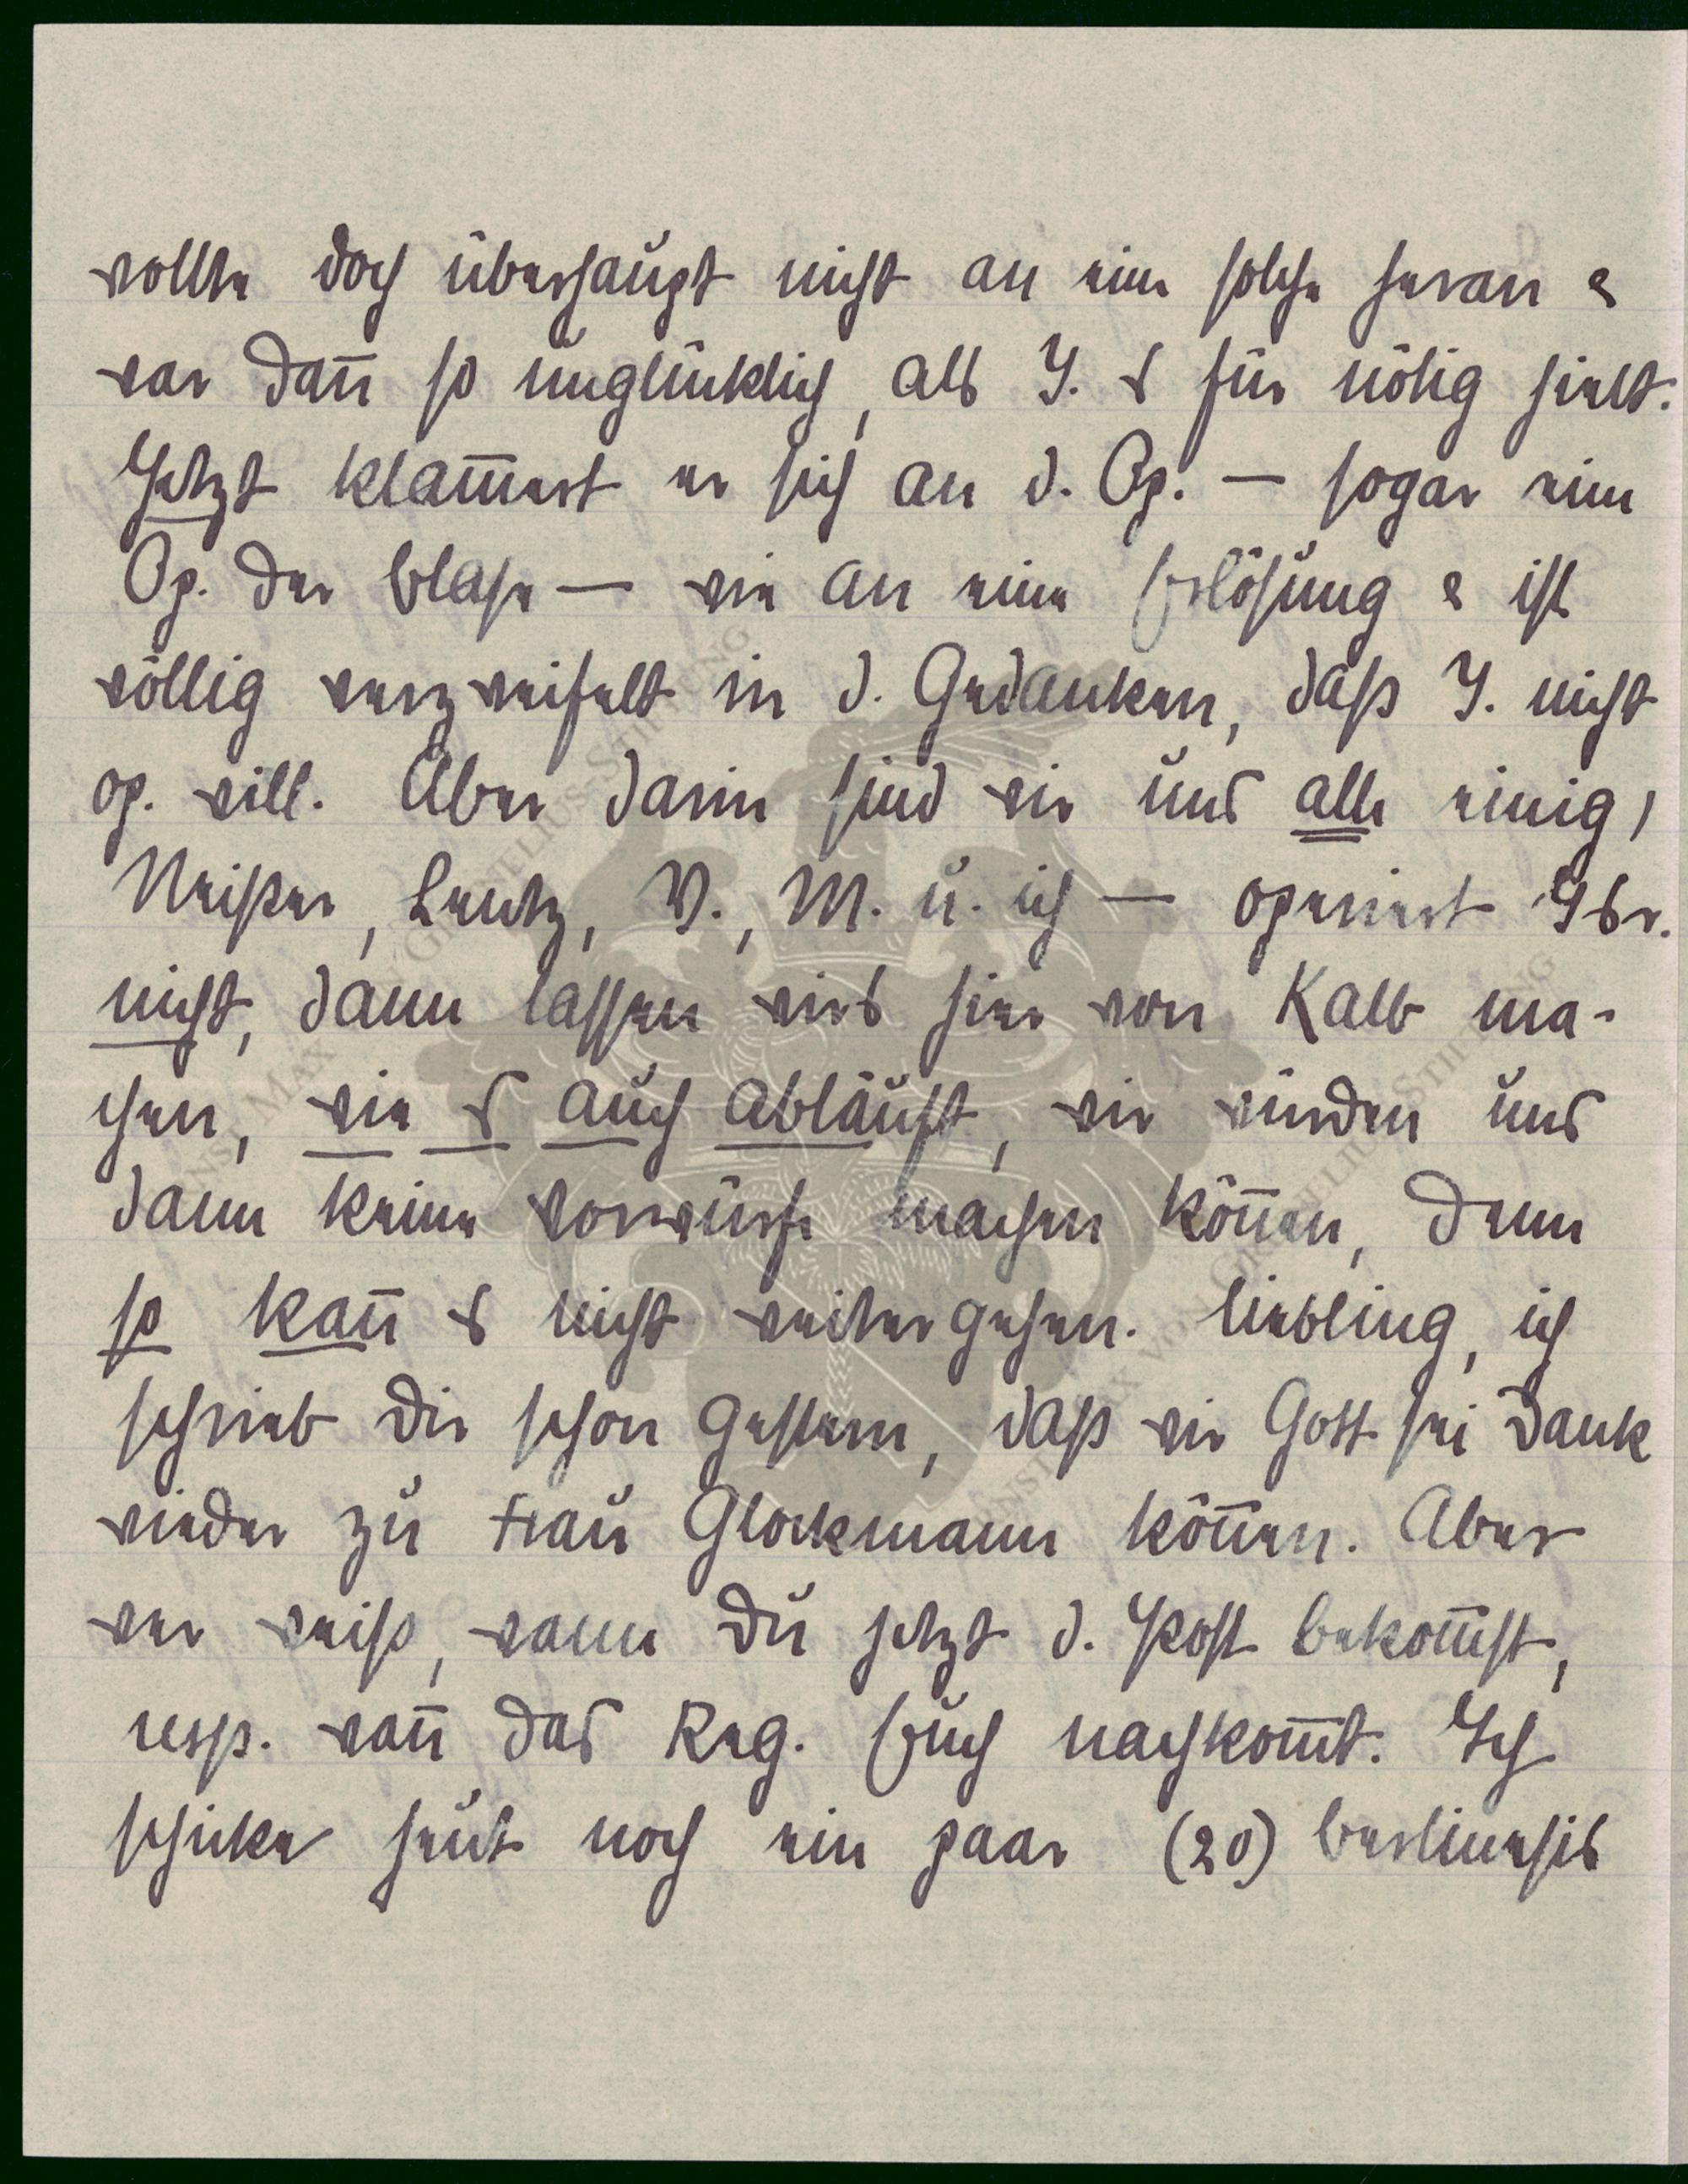 wollte doch überhaupt nicht an eine solche heran &
war dan̄ so unglücklich, als I. es für nötig hielt.
Jetzt klam̄ert er sich an d. Op. — sogar eine
Op. der Blase — wie an eine Erlösung & ist
völlig verzweifelt in d. Gedanken, dass I. nicht
op. will. Aber darin sind wir uns alle einig,
Meisser, Lentz, V., M. u. ich — operiert Isr.
nicht, dann lassen wirs hier von Kalb ma-
chen, wie es auch abläuft, wir würden uns
dann keine Vorwürfe machen kön̄en, denn
so kan̄ es nicht weitergehen. Liebling, ich
schrieb Dir schon gestern, dass wir Gott sei Dank
wieder zu Frau Glockmann kön̄en. Aber
wer weiss, wann Du jetzt d. Post bekom̄st,
resp. wan̄ das Reg. Euch nachkom̄t. Ich
schicke heut noch ein paar (20)